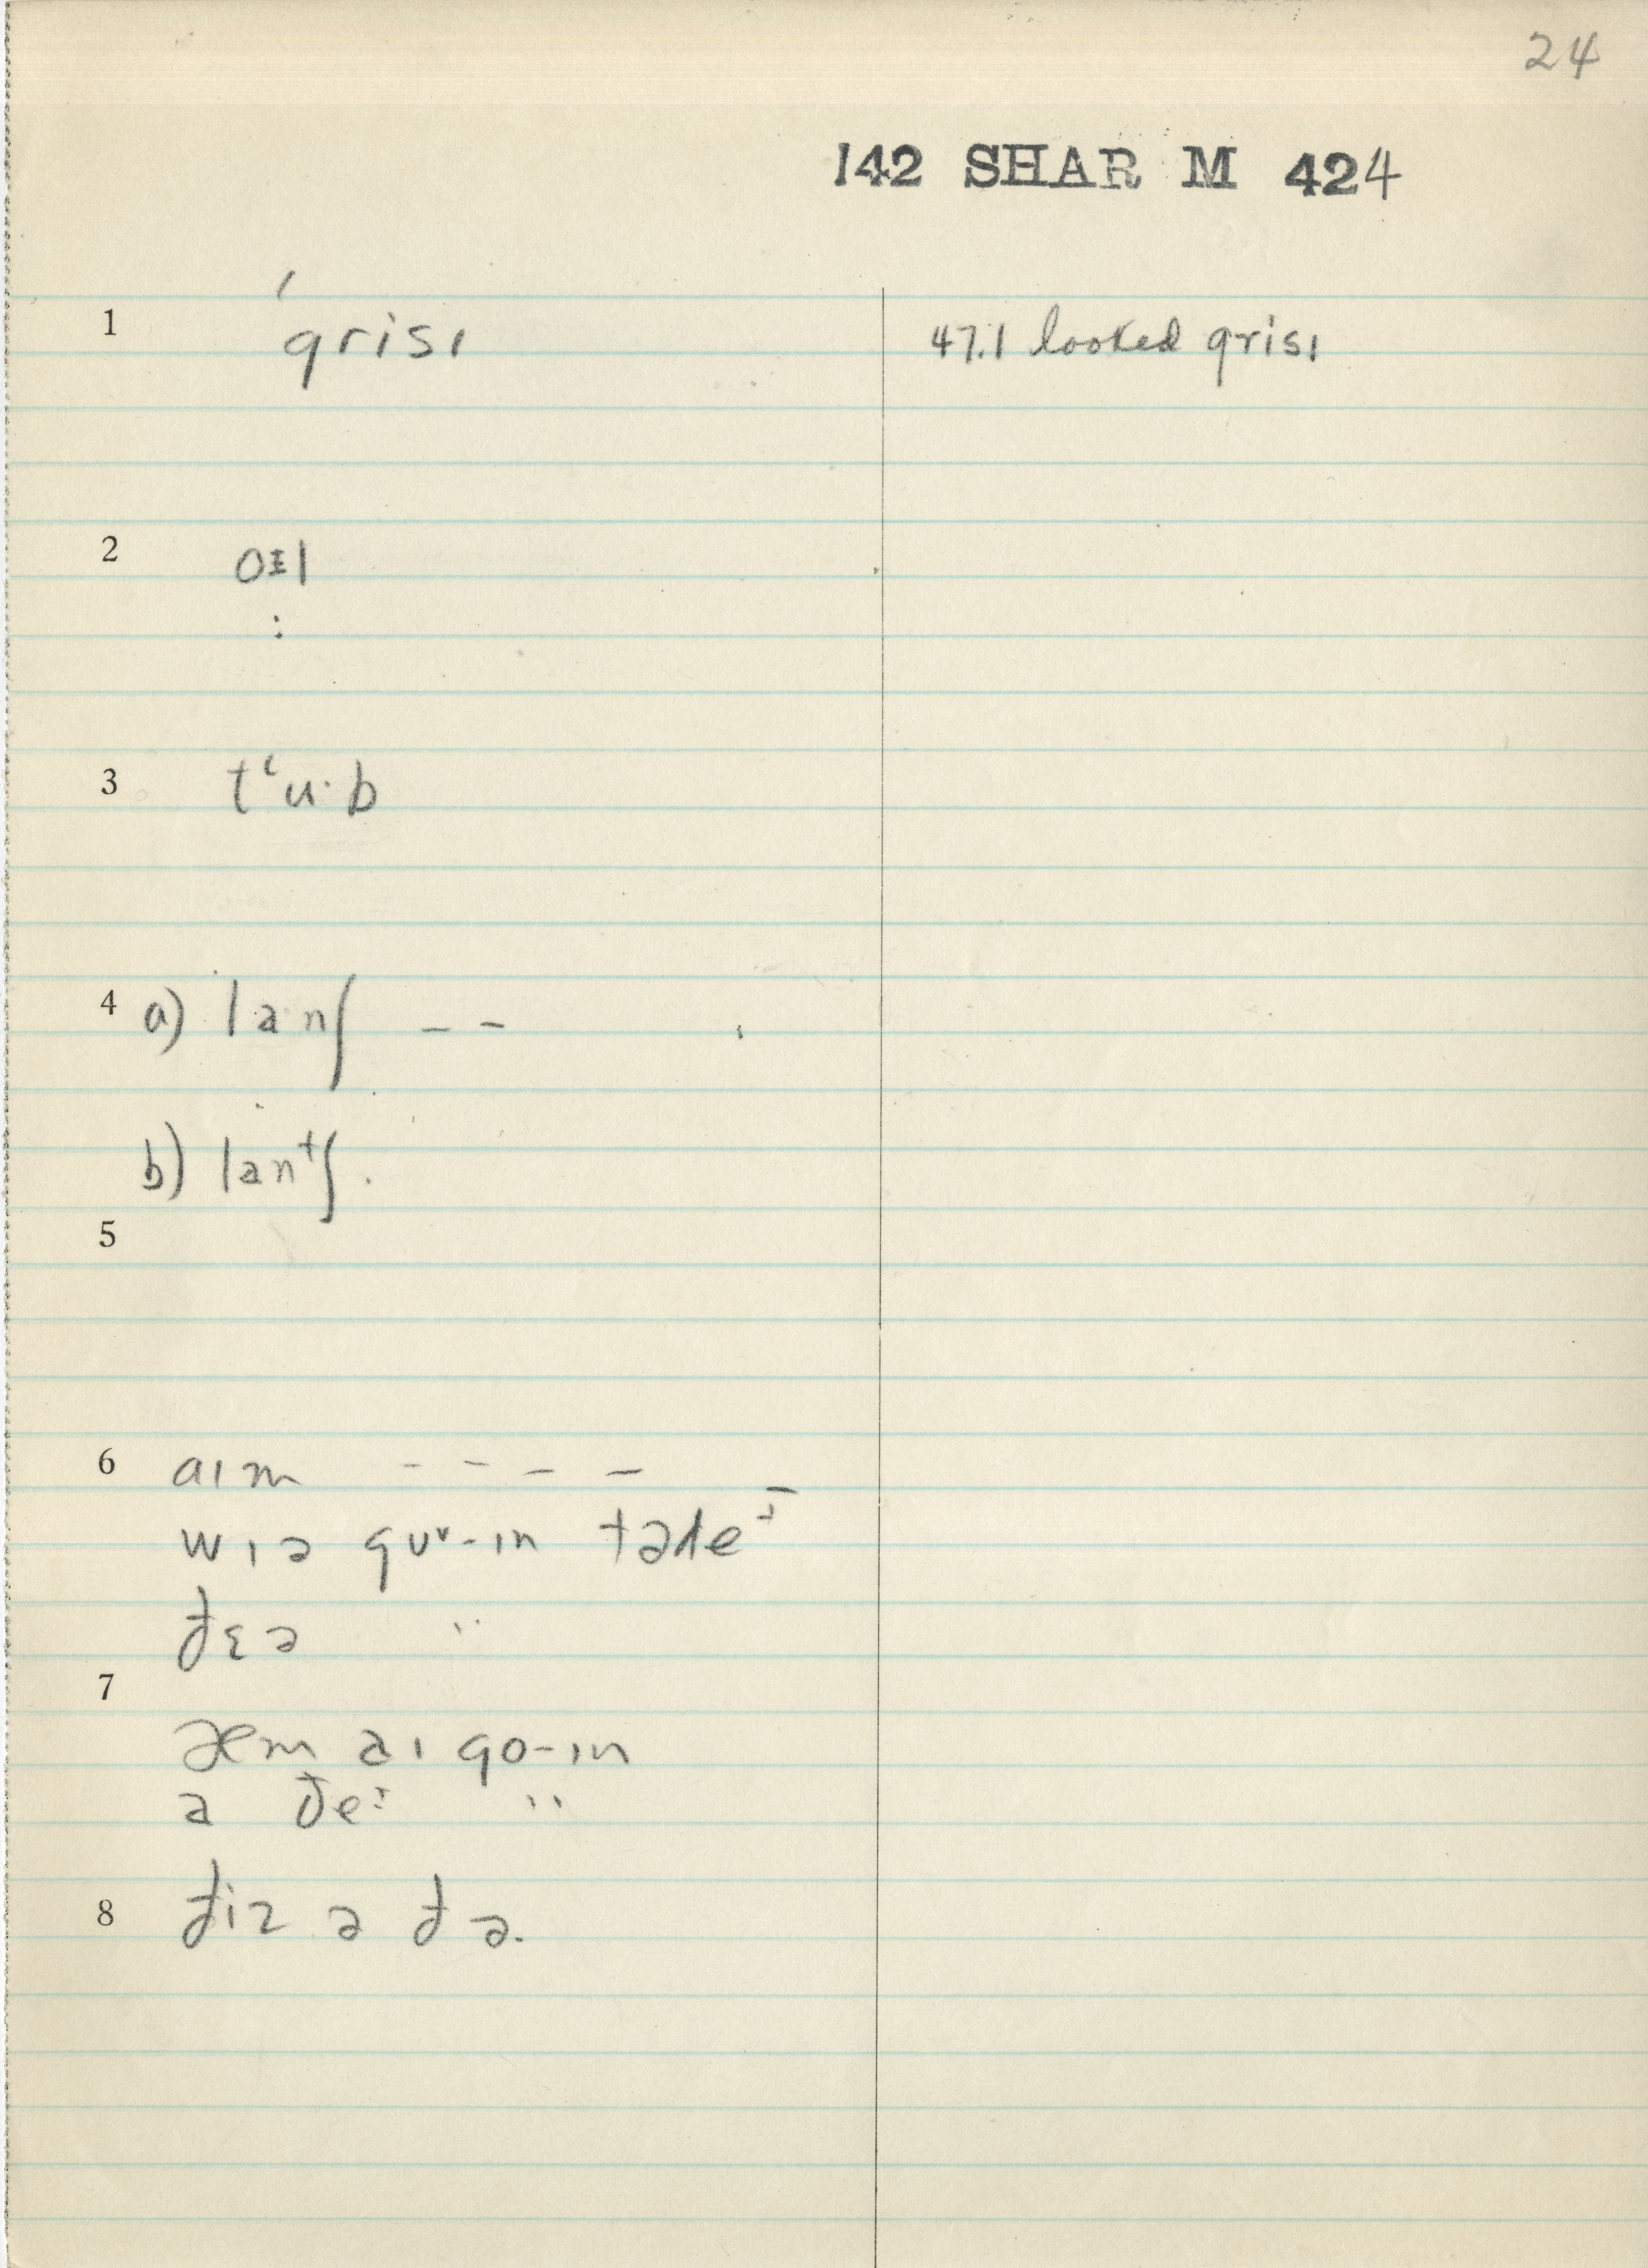 24
142 SHAR M 424
1 ˈgrisɪ 47.1 looked grisɪ
2 oɪl
3 tʻu·b
4 a) lanʃ – –
b) lanᵗʃ.
5
6 aɪm – – – –
wɪə gʊᵛ-ɪn tədeɪ
ðɛə "
7
æm aɪ go-ɪn
a ðeɪ "
8 ðiz a ðə.